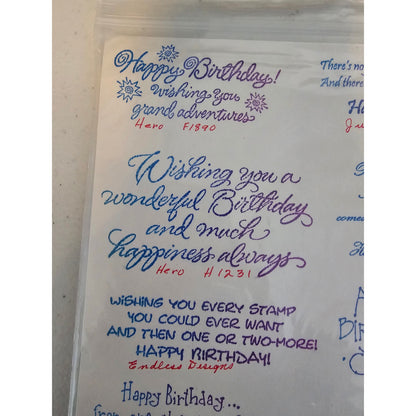 Happy Birthday!
Wishing you
grand adventures
Hero F1890
Wishing you a
wonderful Birthday
and much
happiness always
Hero H1231
WISHING YOU EVERY STAMP
YOU COULD EVER WANT
AND THEN ONE OR TWO-MORE!
HAPPY BIRTHDAY!
Endless Designs
Happy Birthday...
There's no
And there